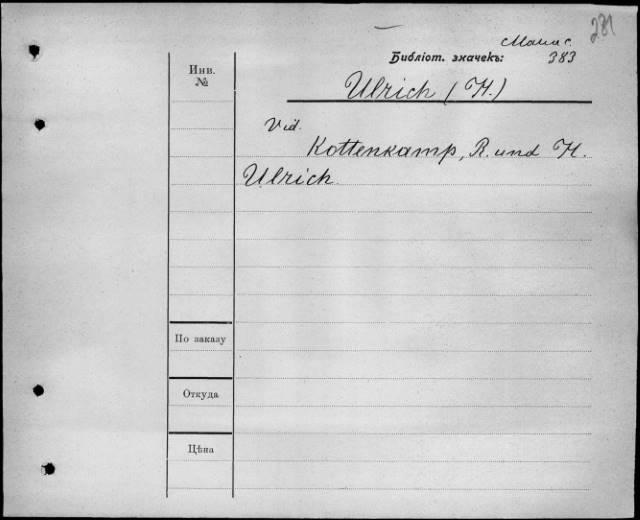 281
Манас.
Библіот. значекъ: 383
Инв.
№
Ulrich (H.)
Vid.
Kottenkamp, R. und H.
Ulrich.
По заказу
Откуда
Цѣна